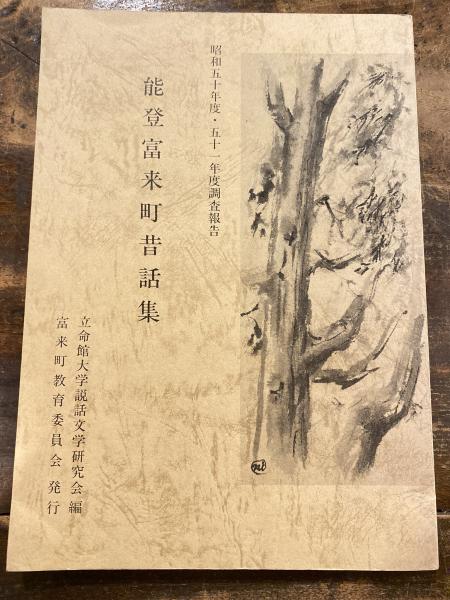 昭和五十年度・五十一年度調査報告
能登富来町昔話集
立命館大学説話文学研究会編
富来町教育委員会発行